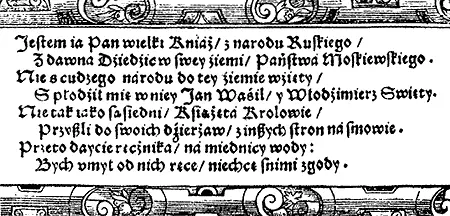 Jestem ia Pan wielki Kniáź / z narodu Ruskiego /
Z dawna Dziedzic w swey źiemi / Páństwá Moskiewskiego.
Nie s cudzego narodu do tey źiemie wźięty /
Spłodźił mie w niey Jan Waśil / y Włodźimierz Swięty.
Nie ták iáko sąśiedni / Kśiążętá Krolowie /
Przyszli do swoich dźierżaw / z inszych stron ná smowie.
Przeto daycie ręcżniká / ná miednicy wody:
Bych vmył od nich ręce / niechcę snimi zgody.